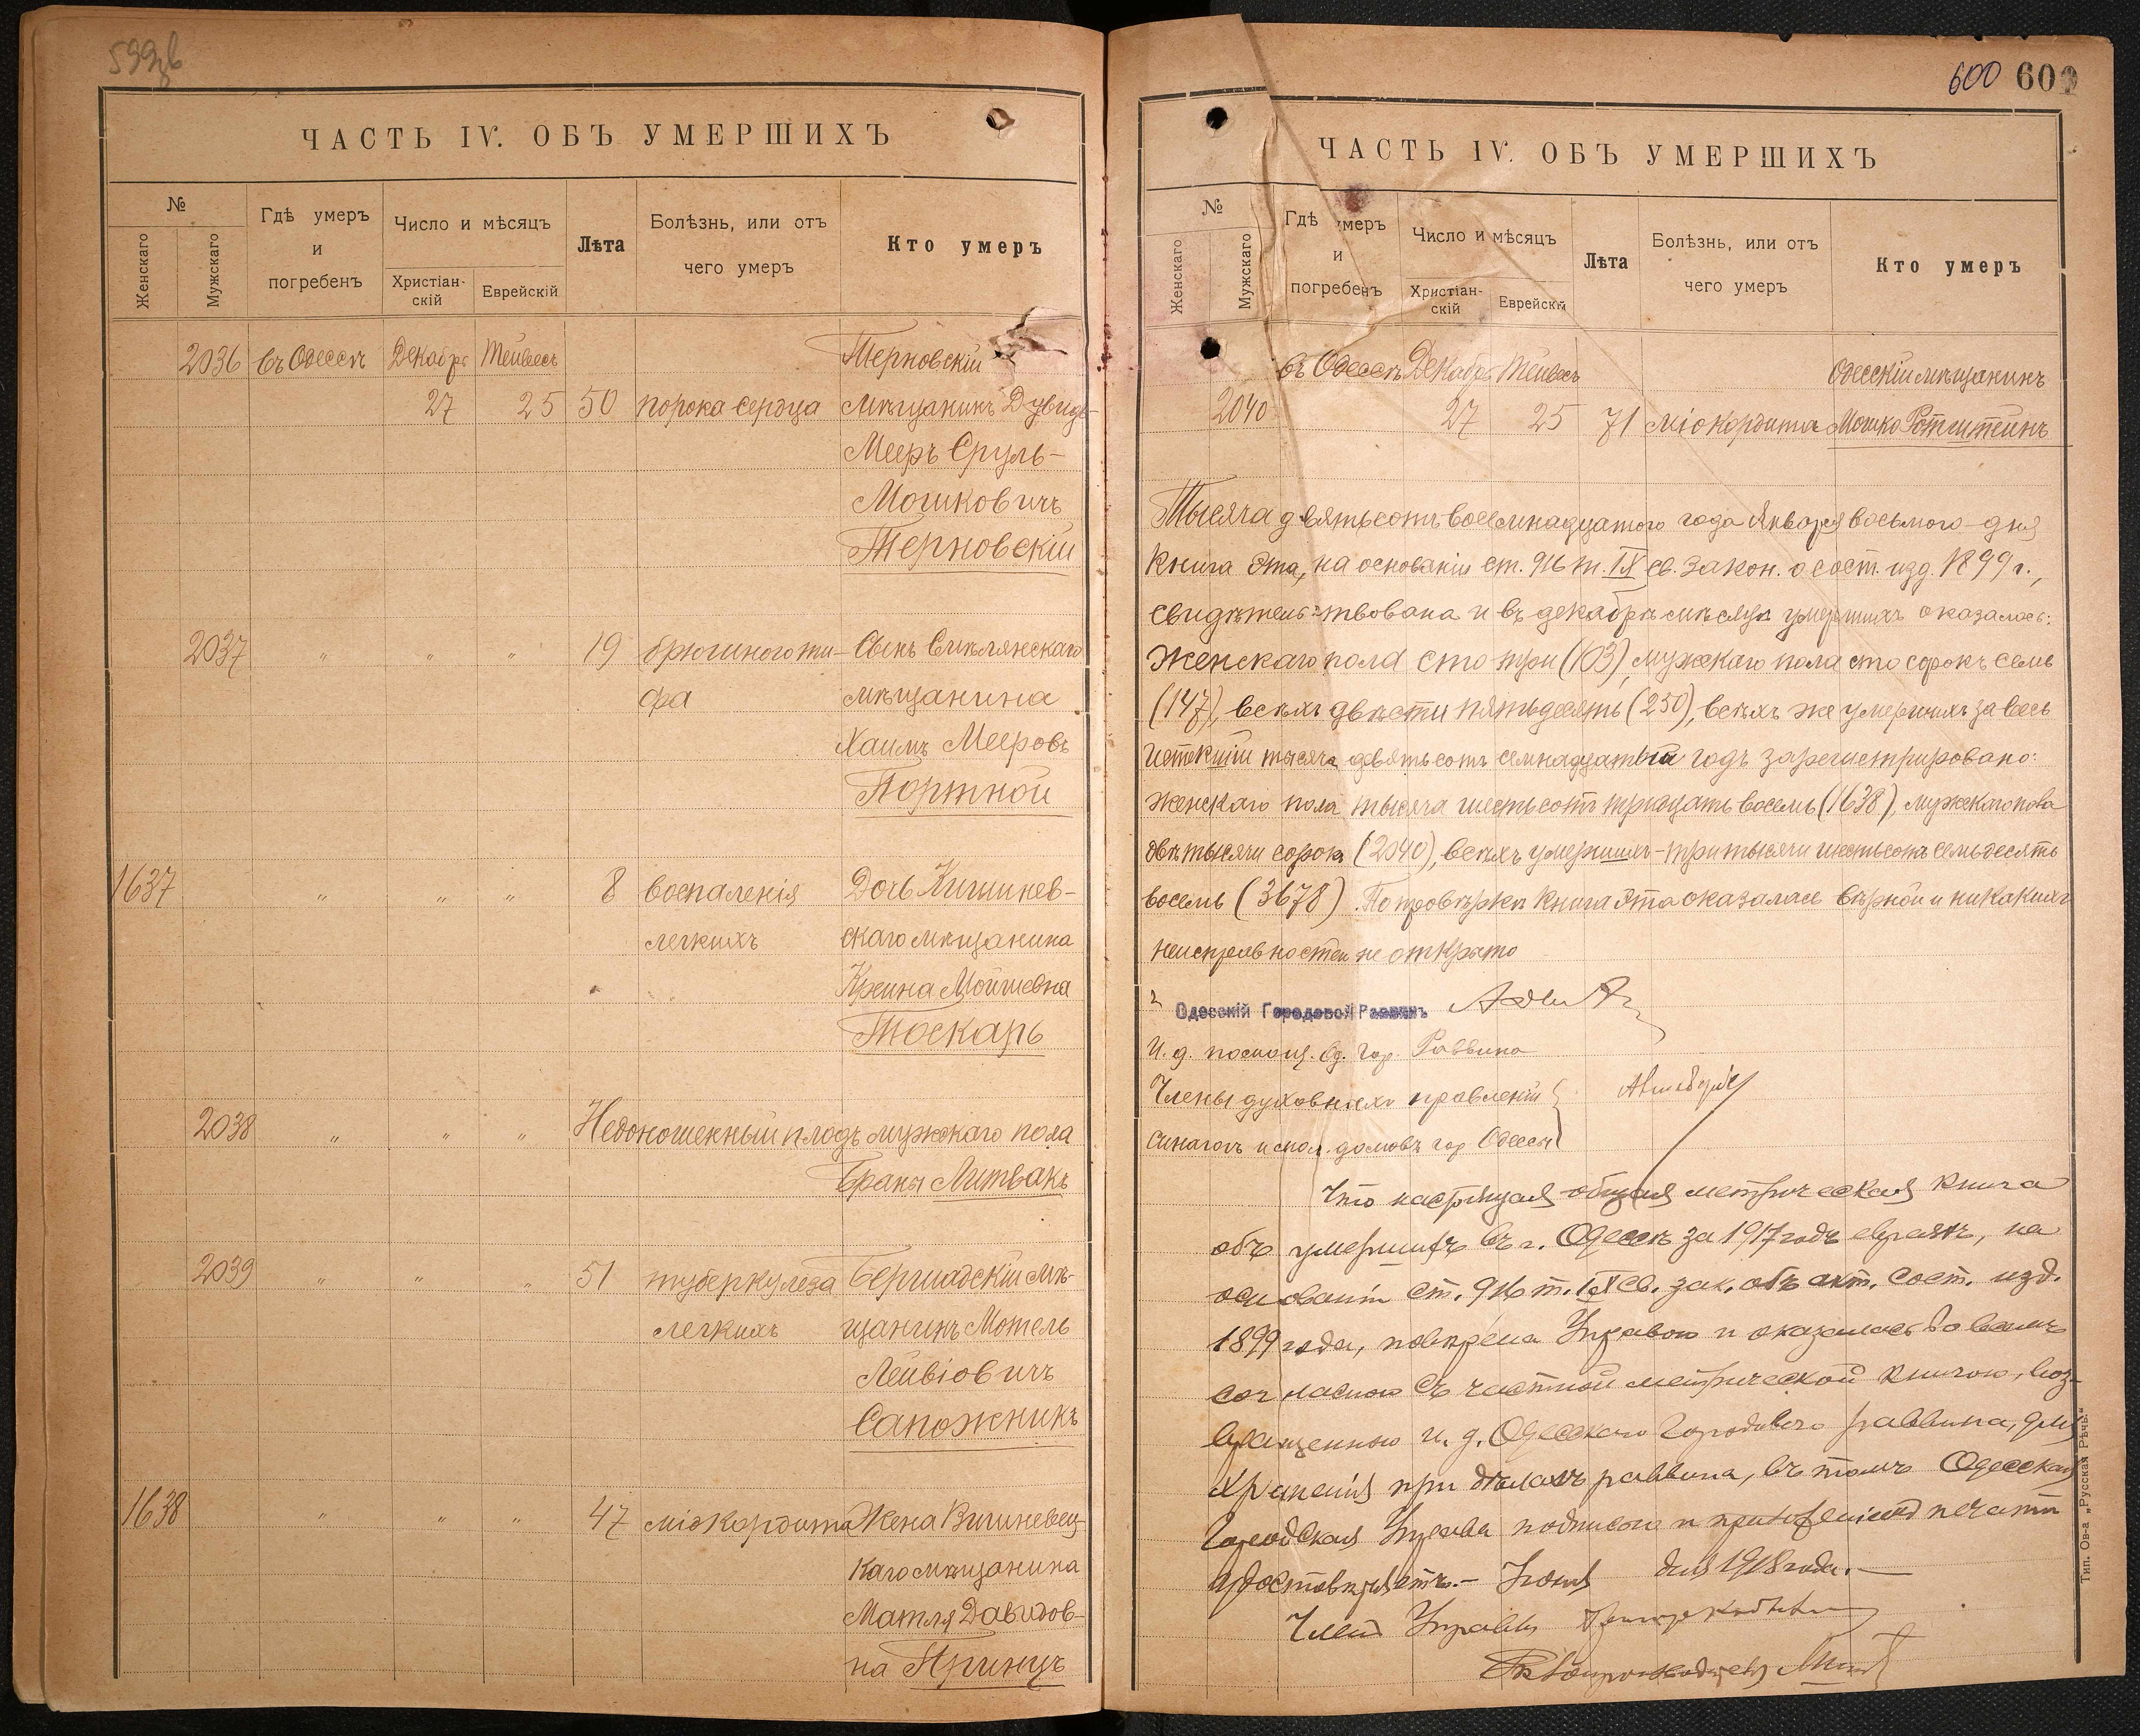 599 об
ЧАСТЬ IV. ОБЪ УМЕРШИХЪ
№
Женскаго
Мужскаго
Гдѣ умеръ
и
погребенъ
Число и мѣсяцъ
Христіан-
скій
Еврейскій
Лѣта
Болѣзнь, или отъ
чего умеръ
Кто умеръ
2036 въ Одессѣ Декабрь Тейвесъ Терновскій
27 25 50 порока сердца мѣщанинъ Дувидъ-
Мееръ Сруль-
Мошковичъ
Терновскій
2037 " " " 19 брюшного ти- Сынъ Смѣлянскаго
фа мѣщанина
Хаимъ Мееровъ
Портной
1637 " " " 8 воспаленія Дочь Кишинев-
легкихъ скаго мѣщанина
Креина Мойшевна
Тоскарь
2038 " " " Недоношенный плодъ мужского пола
Браны Литвакъ
2039 " " " 51 туберкулеза Бершадскій мѣ-
легкихъ щанинъ Мотель
Лейвіовичъ
Сапожникъ
1638 " " " 47 міокардита Жена Вишневец-
каго мѣщанина
Матля Давидов-
на Принцъ
600 600
ЧАСТЬ IV. ОБЪ УМЕРШИХЪ
№
Женскаго
Мужскаго
Гдѣ умеръ
и
погребенъ
Число и мѣсяцъ
Христіан-
скій
Еврейскій
Лѣта
Болѣзнь, или отъ
чего умеръ
Кто умеръ
въ Одессѣ Декабрь Тейвесъ Одесскій мѣщанинъ
2040 27 25 71 міокардита Мошко Ротштейнъ
Тысяча девятьсотъ восемнадцатого года Января восьмого дня
книга эта, на основаніи ст. 916 т. IX св. закон. о сост. изд. 1899 г.,
свидѣтельствована и въ декабрѣ мѣсяцѣ умершихъ оказалось:
женскаго пола сто три (103), мужскаго пола сто сорокъ семь
(147), всѣхъ двѣсти пятьдесятъ (250), всѣхъ же умершихъ за весь
истекшій тысяча девятьсотъ семнадцатый годъ зарегистрировано:
женскаго пола тысяча шестьсотъ тридцать восемь (1638), мужскаго пола
двѣ тысячи сорок (2040), всѣхъ умершихъ - три тысячи шестьсотъ семьдесятъ
восемь (3678). По провѣркѣ книга эта оказалась вѣрной и никакихъ
неисправностей не открыто
Одесскій Городовой Раввинъ
И. д. помощ. Од. Гор. Раввина
Члены духовныхъ правленій
синагогъ и мол. домовъ гор. Одессы
Что настоящая общая метрическая книга
объ умершихъ въ г. Одессѣ за 1917 годъ евреяхъ, на
основаніи ст. 916 т. IX св. зак. объ акт. сост. изд.
1899 года, повѣрена Управою и оказалась во всемъ
согласною съ частной метрической книгою, воз-
вращенною и. д. Одесскаго Городового раввина, для
храненія при дѣлахъ раввина, въ томъ Одесская
Городская Управа подписью и приложеніемъ печати
удостовѣряетъ.- Іюня дня 1918 года.-
Членъ Управы
Дѣлопроизводитель
Тип. Ов-а „Русская Рѣчь"